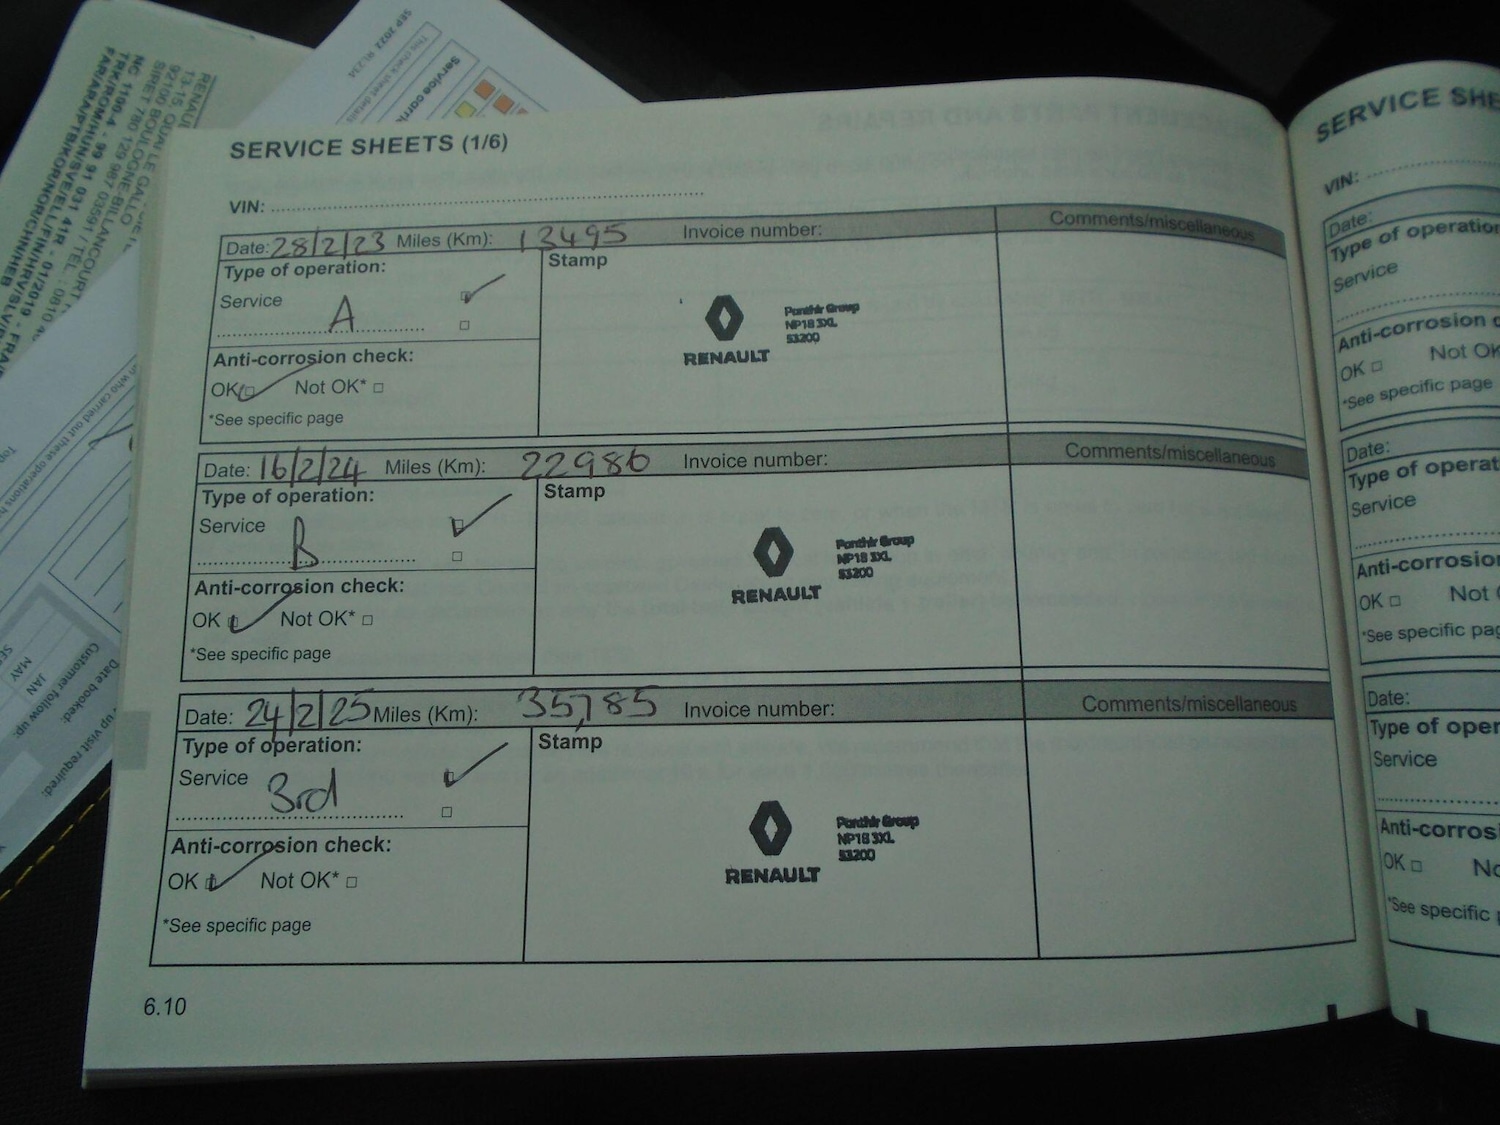 SERVICE SHEETS (1/6)
VIN:
Date: 28/2/23 Miles (Km): 13495 Invoice number: Comments/miscellaneous
Type of operation:
Service
A
Anti-corrosion check:
OK Not OK*
*See specific page
Stamp
RENAULT
Ponthir Group
NP18 3XL
53200
Date: 16/2/24 Miles (Km): 22986 Invoice number: Comments/miscellaneous
Type of operation:
Service
B
Anti-corrosion check:
OK Not OK*
*See specific page
Stamp
RENAULT
Ponthir Group
NP18 3XL
53200
Date: 24/2/25 Miles (Km): 35,785 Invoice number: Comments/miscellaneous
Type of operation:
Service
3rd
Anti-corrosion check:
OK Not OK*
*See specific page
Stamp
RENAULT
Ponthir Group
NP18 3XL
53200
6.10
SERVICE SHE
VIN:
Date:
Type of operation
Service
Anti-corrosion c
OK Not OK
*See specific page
Date:
Type of operat
Service
Anti-corrosio
OK Not
*See specific pag
Date:
Type of oper
Service
Anti-corros
OK No
*See specific
SEP 2022 RL234
This check sheet details
Service carri
13-15, QUAI LE GALLO
92100 BOULOGNE-BILLANCOURT
SIRET 780 129 987 03591 / TEL : 0810
NC 1190-4 - 99 91 031 41R - 01/2019 - FRA
who carried out these operations
Date booked:
Customer follow up:
up visit required:
JAN
MAY